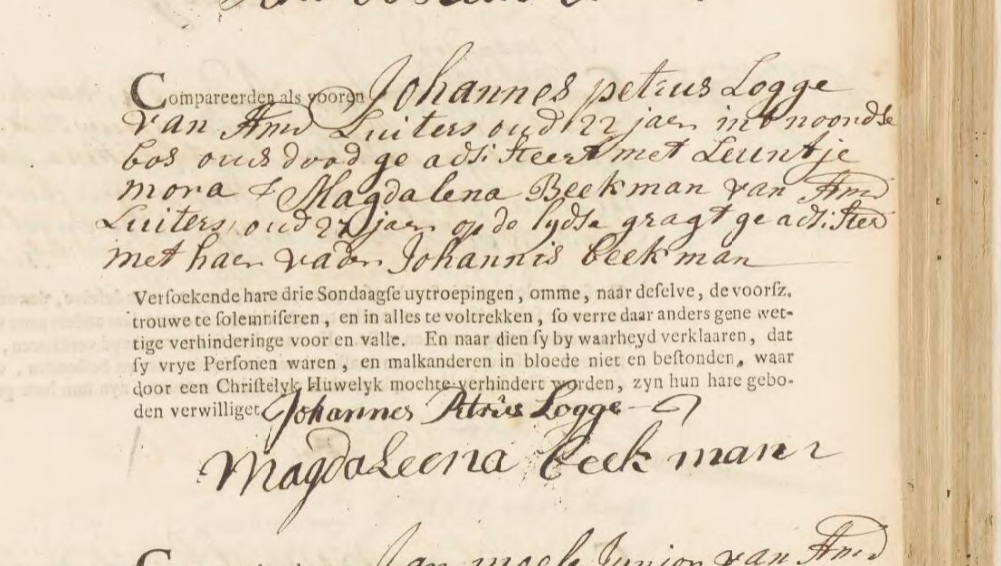 Compareerden als vooren Johannes petrus Logge
van Amd Luiters oud 22 jaer in t noordse
bos ouders dood ge adsisteert met Leuntje
mora & Magdalena Beekman van Amd
Luiters oud 22 jaer op de lydse gragt ge adsisteed
met haer vader Johannis beekman
Versoekende hare drie Sondaagse uytroepingen, omme, naar deselve, de voorsz.
trouwe te solemniseren, en in alles te voltrekken, so verre daar anders gene wet-
tige verhinderinge voor en valle. En naar dien sy by waarheyd verklaaren, dat
sy vrye Personen waren, en malkanderen in bloede niet en bestonden, waar
door een Christelyk Huwelyk mochte verhindert worden, zyn hun hare gebo-
den verwilliget. Johannes Petrus Logge
Magdaleena beekman
Jan Junior van Amd